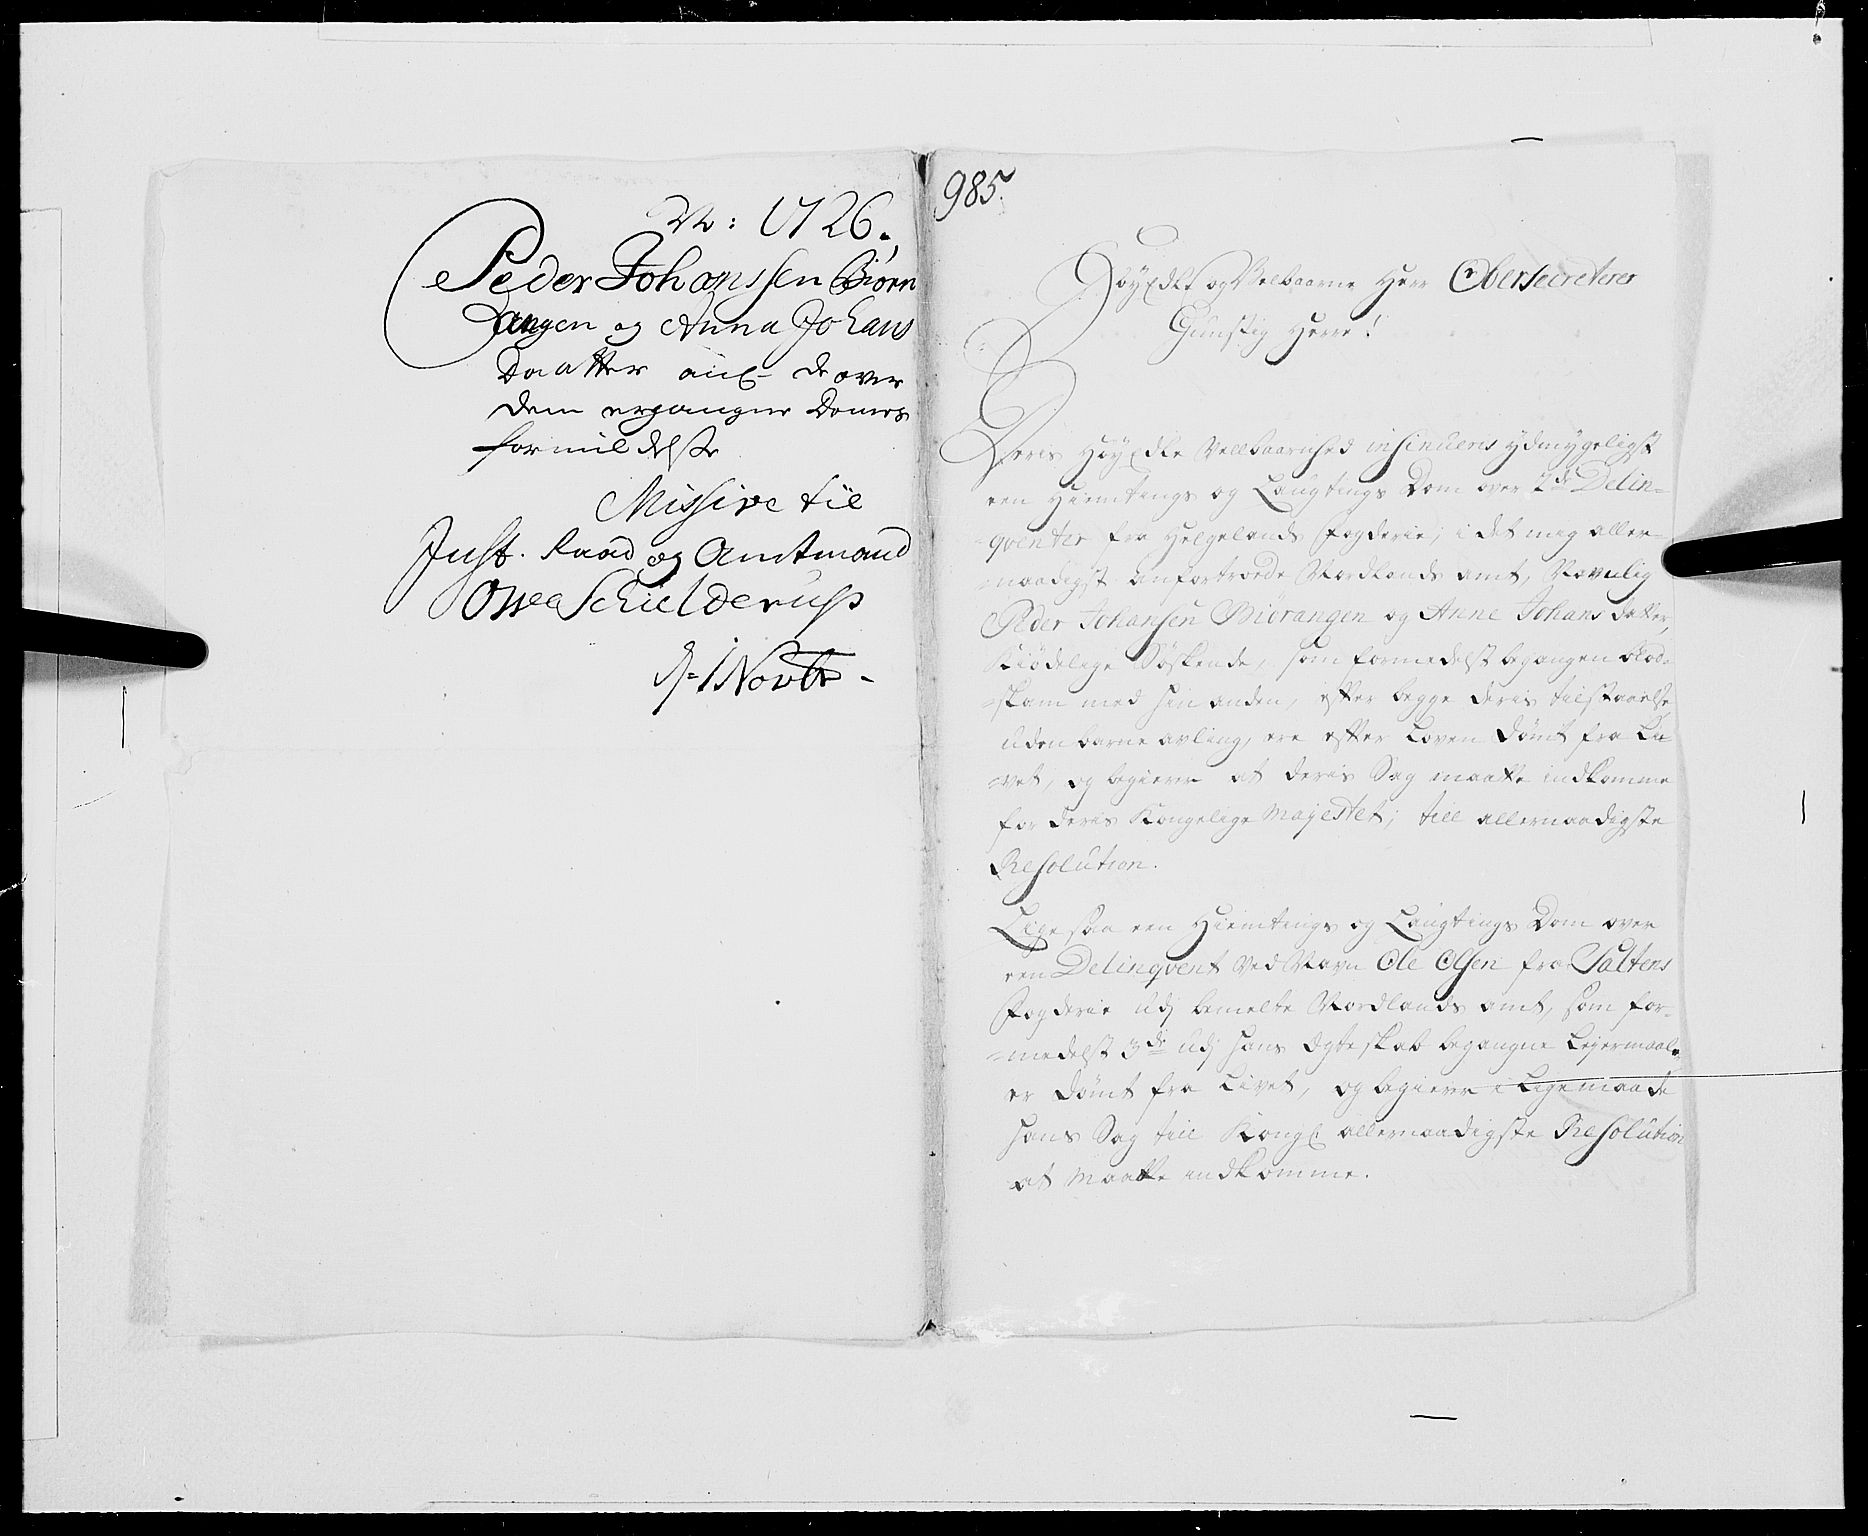 No: 1726.
Peder Johanssen Biørn
Rangen og Anna Johans
Daatter ang. de over
dem ergangne Domes
formildelse
Missive til
Just. Raad og Amtmand
Owe Schielderup
d. 1 Novbr.
985.
Høyædle og Velbaarne Herr Obersecreterer
Gunstig Herre!
Deris Høyædle Vellbaarnhed insinueris ydmygeligst
een Hiemtings og Laugtings Dom over 2de Delin=
qventer fra Helgelands Fogderie, i det mig aller=
=naadigst anfortroede Nordlands amt, Navnlig
Peder Johansen Biørangen og Anne Johans datter,
Kiødelige Søskende, som formedelst begangen blod=
=skam med hin anden, efter begge deris tilstaaelse,
uden barne avling, ere efter Loven dømt fra Li=
=vet, og begierer at deris Sag maatte indkomme
for deris Kongelige Majestet, till allernaadigste
Resolution.
Lige saa een Hiemtings og Laugtings Dom over
een Delinqvent ved Navn Ole Olsen fra Saltens
Fogderie udj bemelte Nordlands amt, som for=
=medelst 3de udj hans Egteskab begangne Leyermaale,
er dømt fra Livet, og begierer i Ligemaade
hans Sag till Kongl. allernaadigste Resolution
at maatte indkomme.